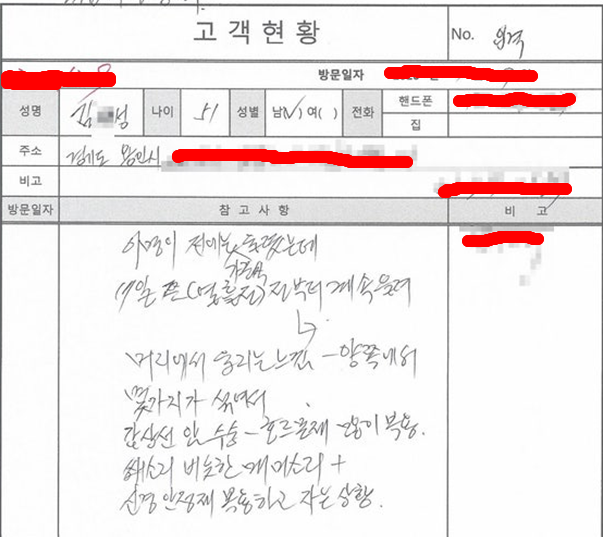 고객현황
No. 원격
방문일자
성명 김 성 나이 51 성별 남(√) 여( ) 전화 핸드폰
집
주소 경기도 용인시
비고
방문일자 참고사항 비고
이명이 전에는 들렸는데
가끔씩
(열흘전)전부터 계속 들려
머리에서 울리는 느낌 - 양쪽에서
몇가지가 섞여서
갑상선 암 수술 - 호르몬제 많이 복용.
쇳소리 비슷한 매미소리 +
신경안정제 복용하고 자는 상황.